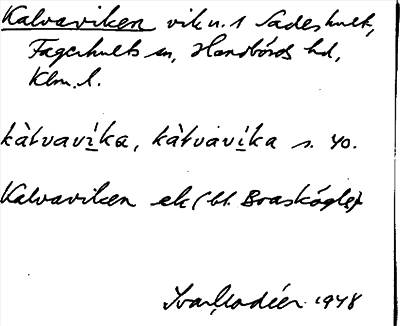 Kalvaviken vik u. 1 Sadeshult,
Fagerhults sn, Handbörds hd,
Klm. l.
kàtvavíka, kàtvavíka s. 40.
Kalvaviken ek (bl. Braskögle)
Ivar Modéer 1948